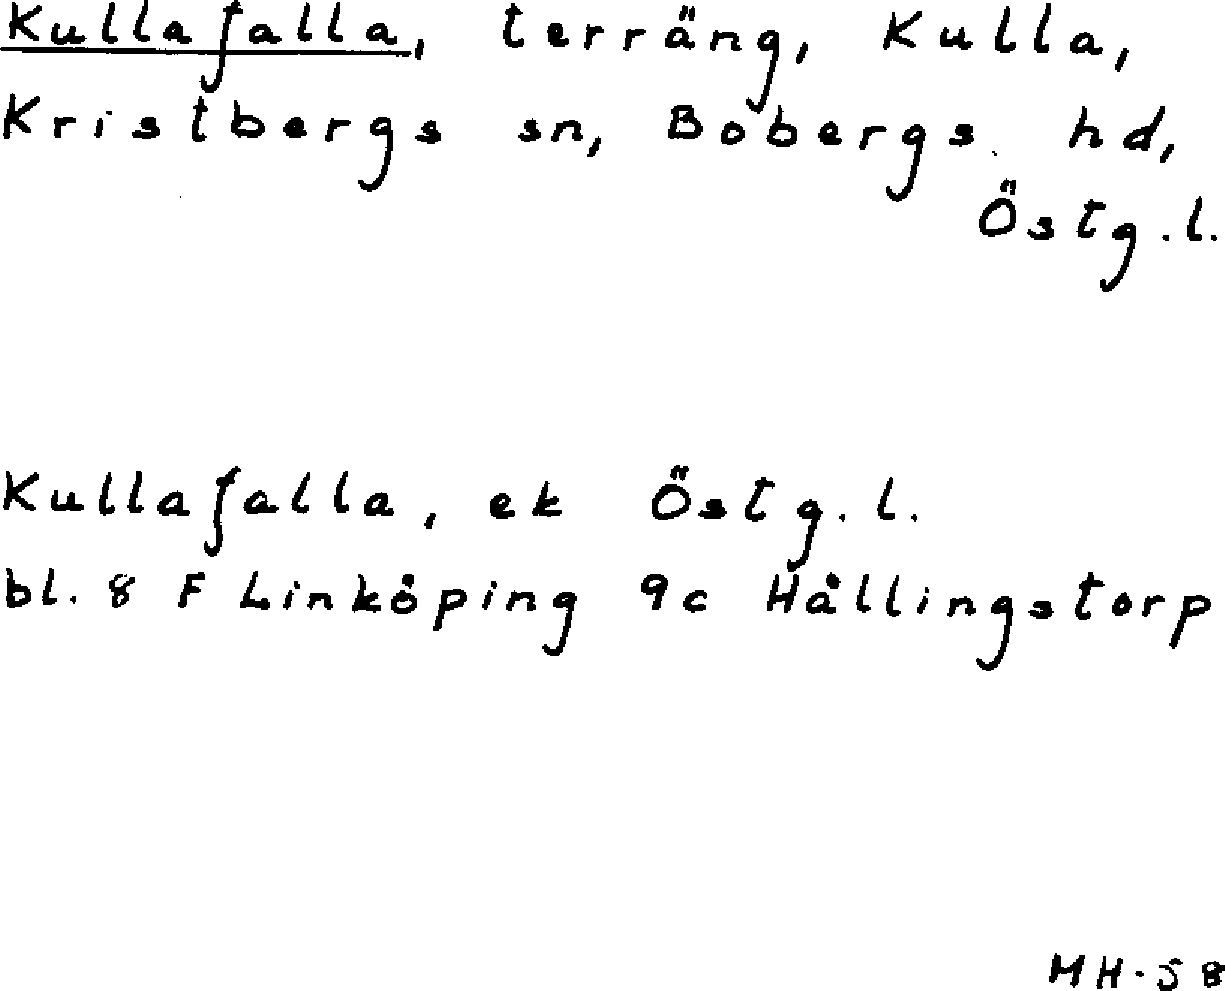 Kullafalla, terräng, Kulla,
Kristbergs sn, Bobergs hd,
Östg.l.
Kullafalla, ek Östg.l.
bl. 8 F Linköping 9c Hällingstorp
MH-58